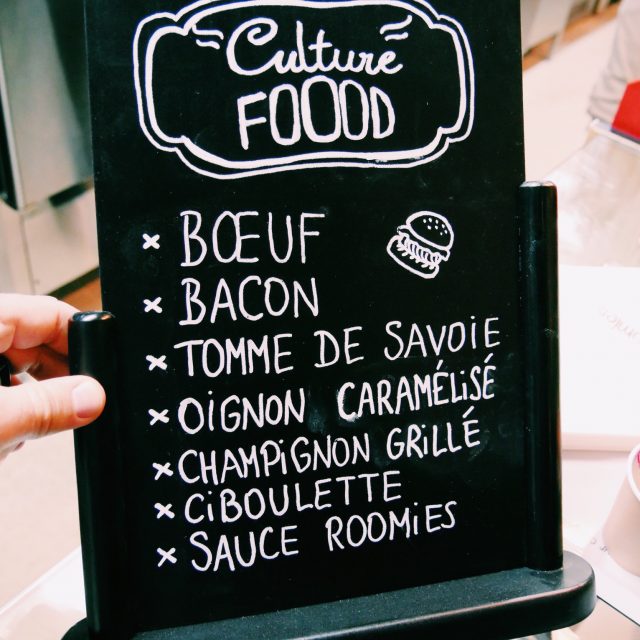 Culture
FOOOD
× BŒUF
× BACON
× TOMME DE SAVOIE
× OIGNON CARAMÉLISÉ
× CHAMPIGNON GRILLÉ
× CIBOULETTE
× SAUCE ROOMIES